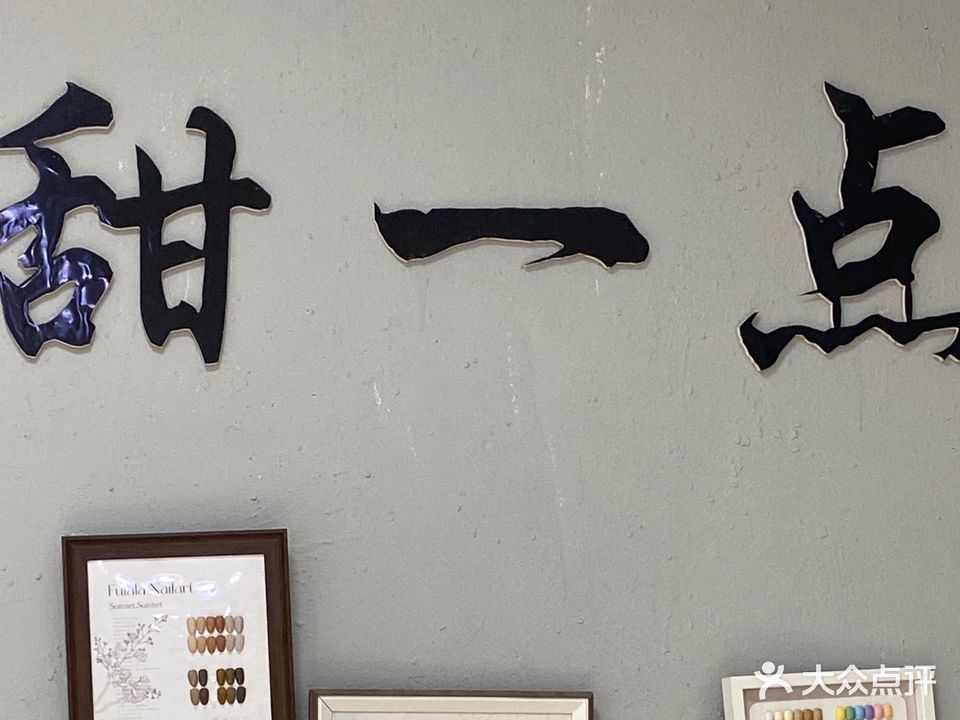 甜一点
Fulala Nailart
Sonnet.Sonnet
大众点评